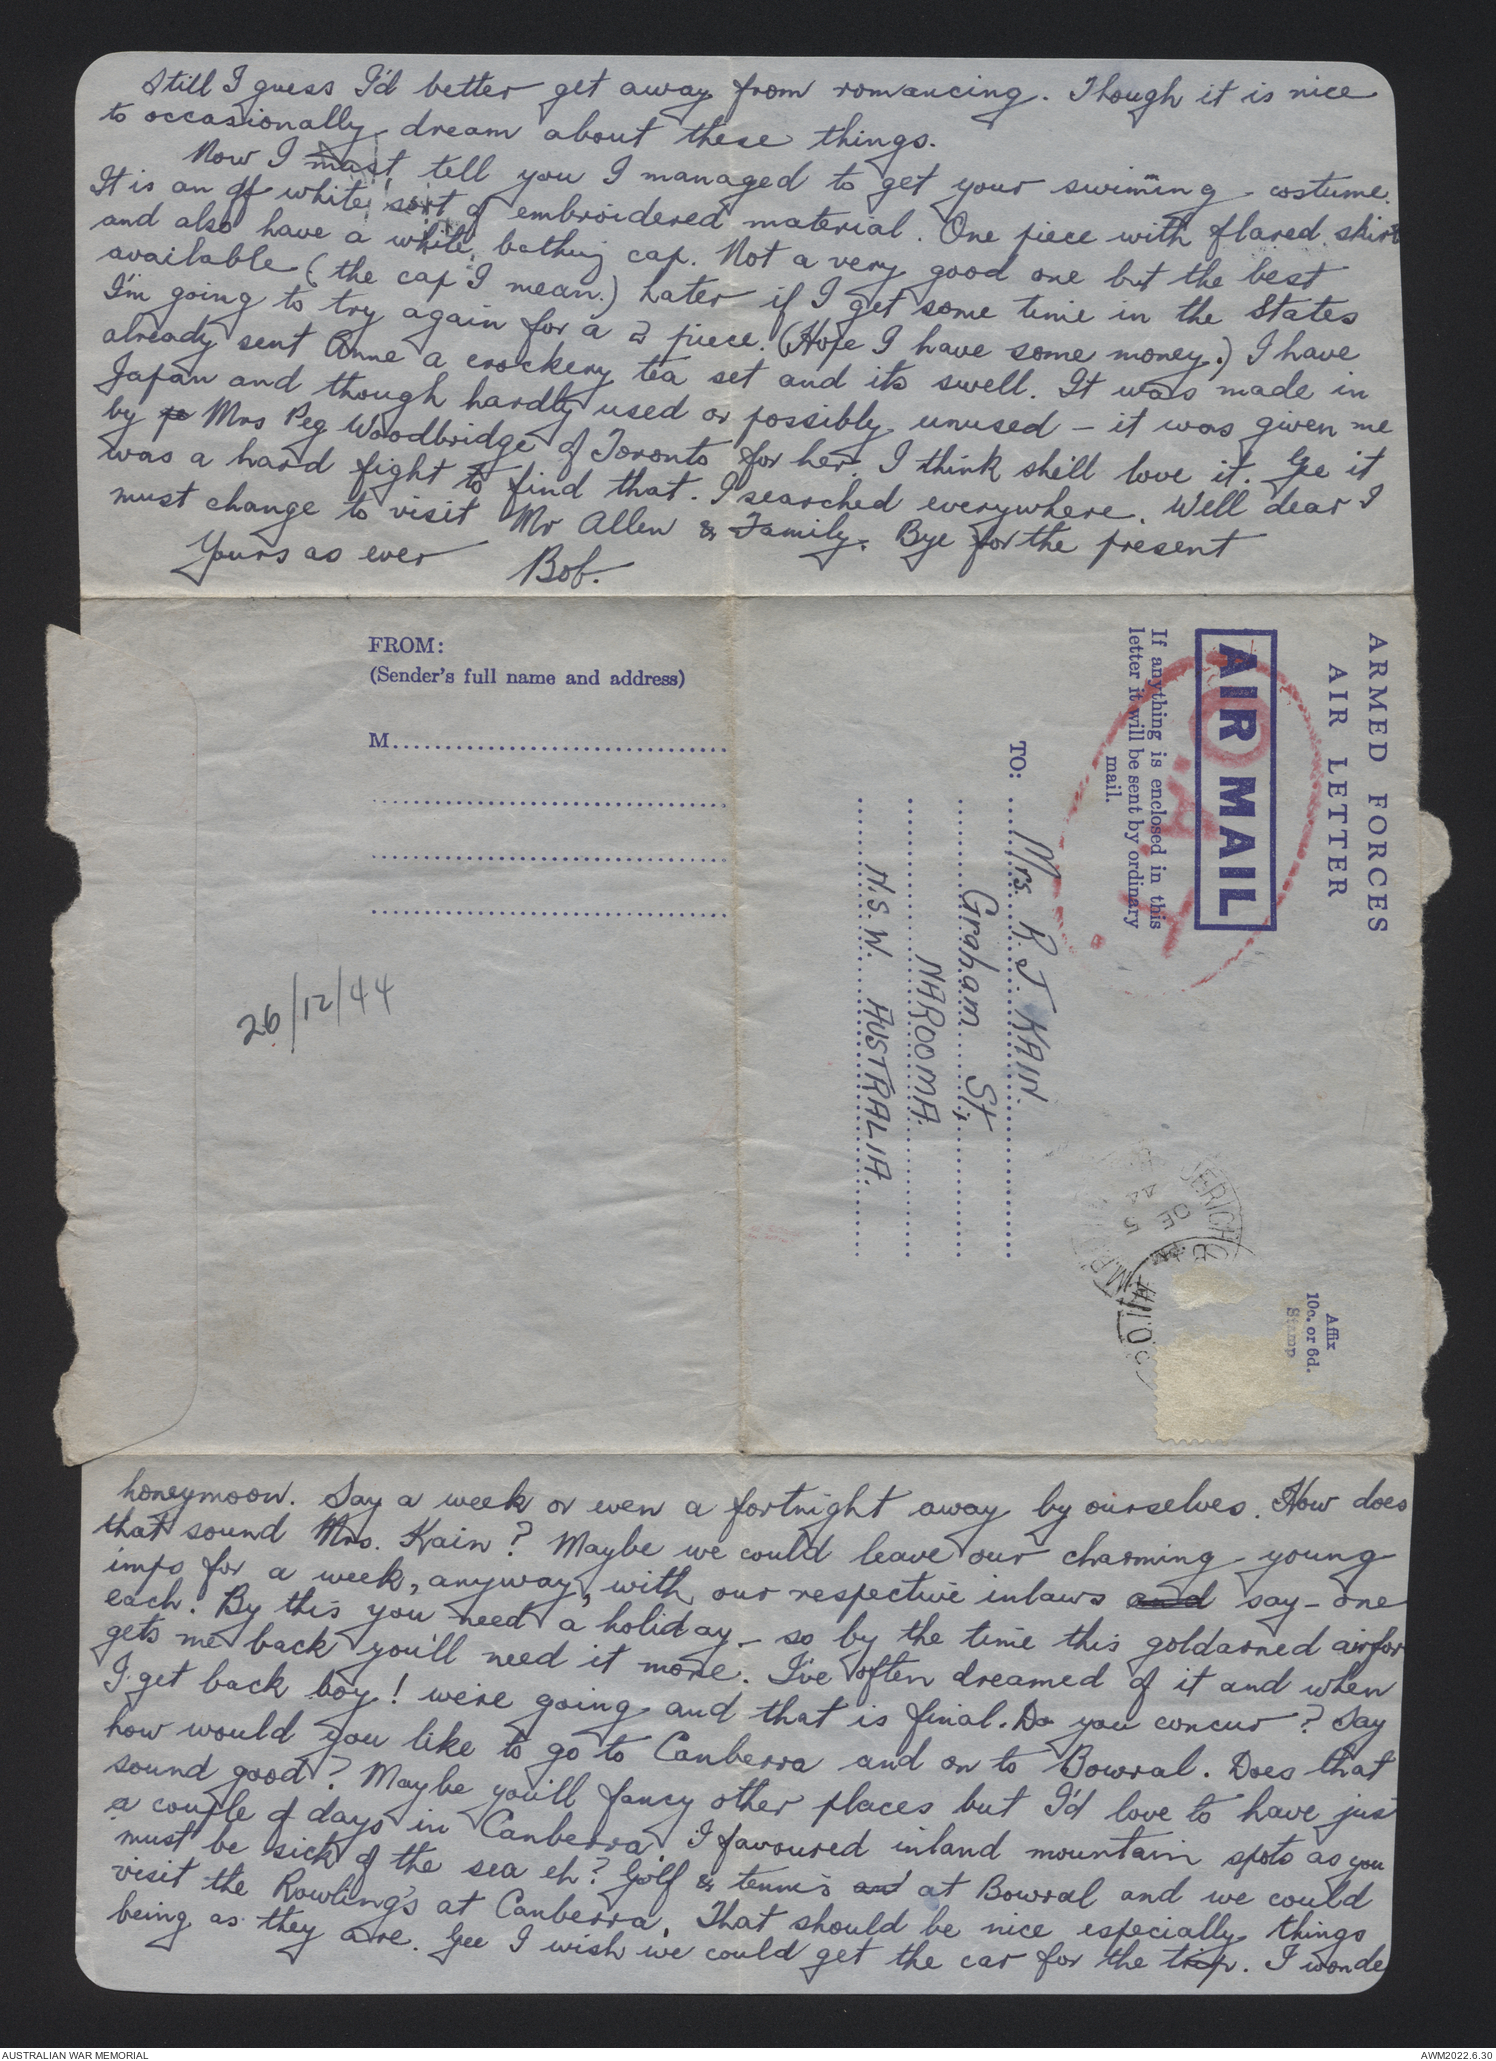 Still I guess I'd better get away from romancing. Though it is nice
to occasionally dream about these things.
Now I must tell you I managed to get your swimming costume.
It is an off white sort of embroidered material. One piece with flared skirt
and also have a white bathing cap. Not a very good one but the best
available (the cap I mean.) Later if I get some time in the States
I'm going to try again for a 2 piece. (Hope I have some money.) I have
already sent Anne a crockery tea set and its swell. It was made in
Japan and though hardly used or possibly unused – it was given me
by Mrs Peg Woodbridge of Toronto for her. I think she'll love it. Gee it
was a hard fight to find that. I searched everywhere. Well dear I
must change to visit Mr Allen & Family. Bye for the present
Yours as ever Bob.
FROM:
(Sender's full name and address)
M
26/12/44
ARMED FORCES
AIR LETTER
AIR MAIL
If anything is enclosed in this
letter it will be sent by ordinary
mail.
TO:
Mrs. R J KAIN.
Graham St,
NAROOMA.
N.S.W. AUSTRALIA.
5
DE
44
Affix
10c. or 6d.
Stamp
honeymoon. Say a week or even a fortnight away by ourselves. How does
that sound Mrs. Kain? Maybe we could leave our charming young
imps for a week, anyway, with our respective inlaws and say – one
each. By this you need a holiday – so by the time this goldarned airfor
gets me back you'll need it more. I've often dreamed of it and when
I get back boy! we're going and that is final. Do you concur? Say
how would you like to go to Canberra and on to Bowral. Does that
sound good? Maybe you'll fancy other places but I'd love to have jus
a couple of days in Canberra. I favoured inland mountain spots as you
must be sick of the sea eh? Golf & tennis and at Bowral and we could
visit the Rowling's at Canberra. That should be nice especially things
being as they are. Gee I wish we could get the car for the trip. I wonde
AUSTRALIAN WAR MEMORIAL
AWM2022.6.30